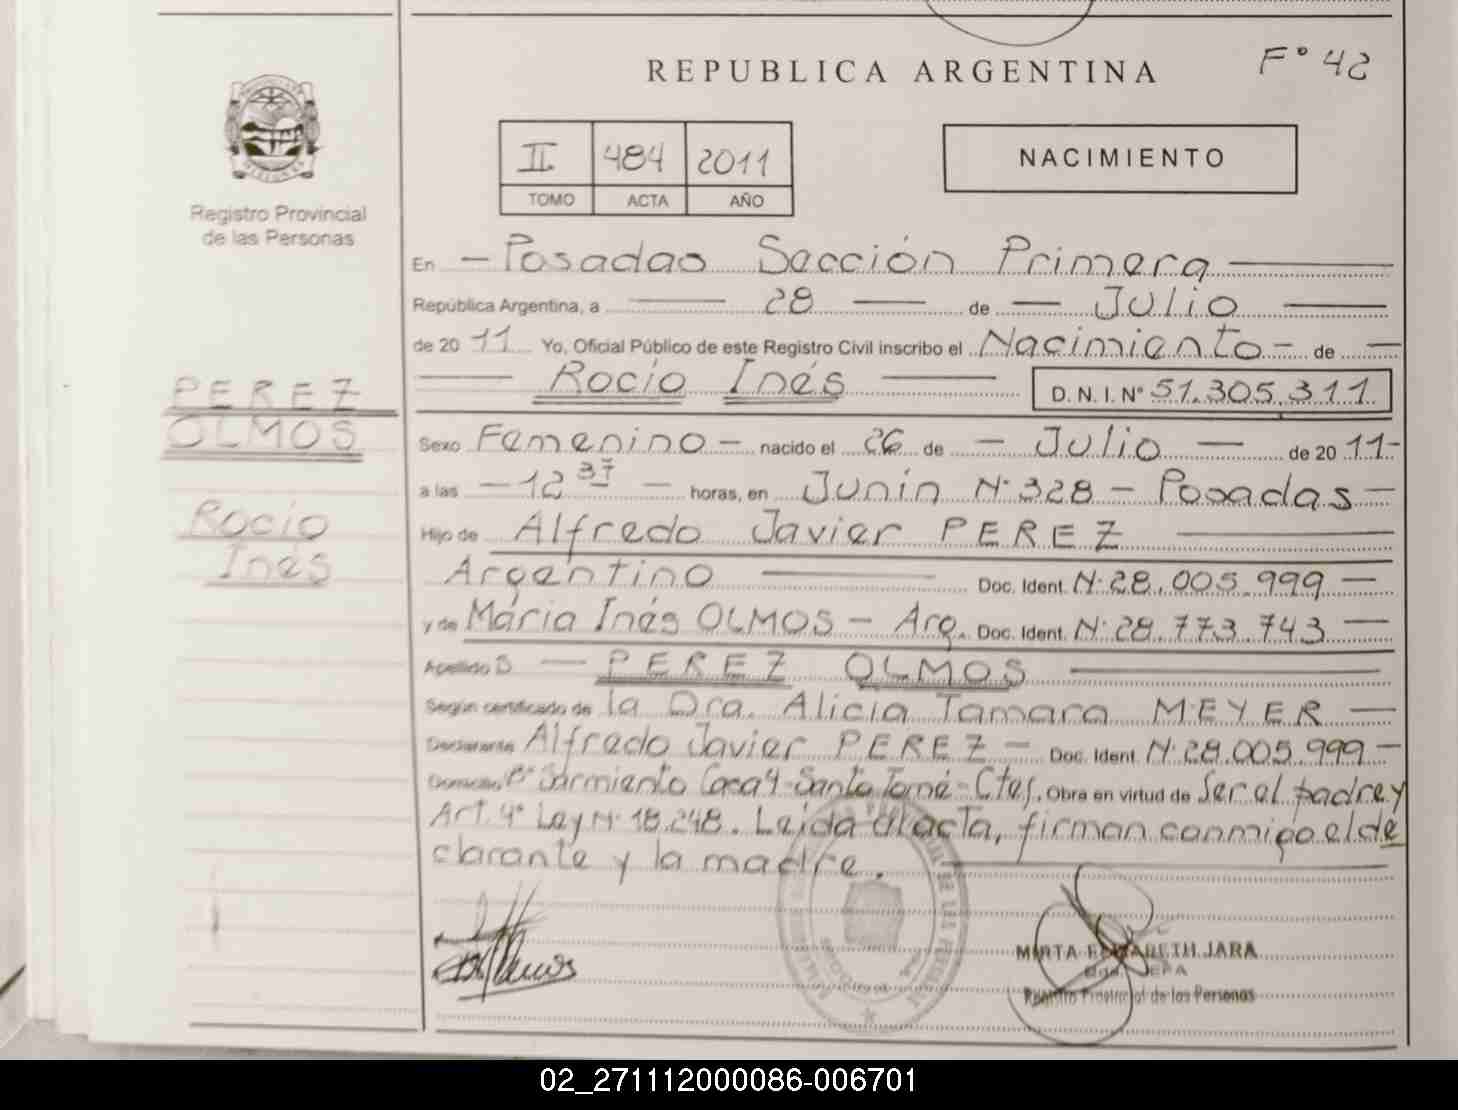 F° 42
REPUBLICA ARGENTINA
II 484 2011
TOMO ACTA AÑO
NACIMIENTO
Registro Provincial
de las Personas
En - Posadas Sección Primera
República Argentina, a 28 de - Julio
de 20 11 Yo, Oficial Público de este Registro Civil inscribo el Nacimiento - de -
Rocío Inés D. N. I. N° 51.305.311
PEREZ
OLMOS
Rocío
Inés
Sexo Femenino - nacido el 26 de - Julio - de 20 11-
a las - 12 37 - horas, en Junín N° 328 - Posadas -
Hijo de Alfredo Javier PEREZ
Argentino Doc. Ident. N° 28.005.999 -
y de María Inés OLMOS - Arg. Doc. Ident. N° 28.773.743 -
Apellido S - PEREZ OLMOS
Según certificado de la Dra. Alicia Tamara MEYER -
Declarante Alfredo Javier PEREZ - Doc. Ident. N° 28.005.999 -
Domicilio B° Sarmiento Casa 4 - Santo Tomé - Ctes. Obra en virtud de Ser el padre y
Art. 4° Ley N° 18.248. Leída el acta, firman conmigo el de
clarante y la madre.
MIRTA ELIZABETH JARA
Registro Provincial de las Personas
02_271112000086-006701